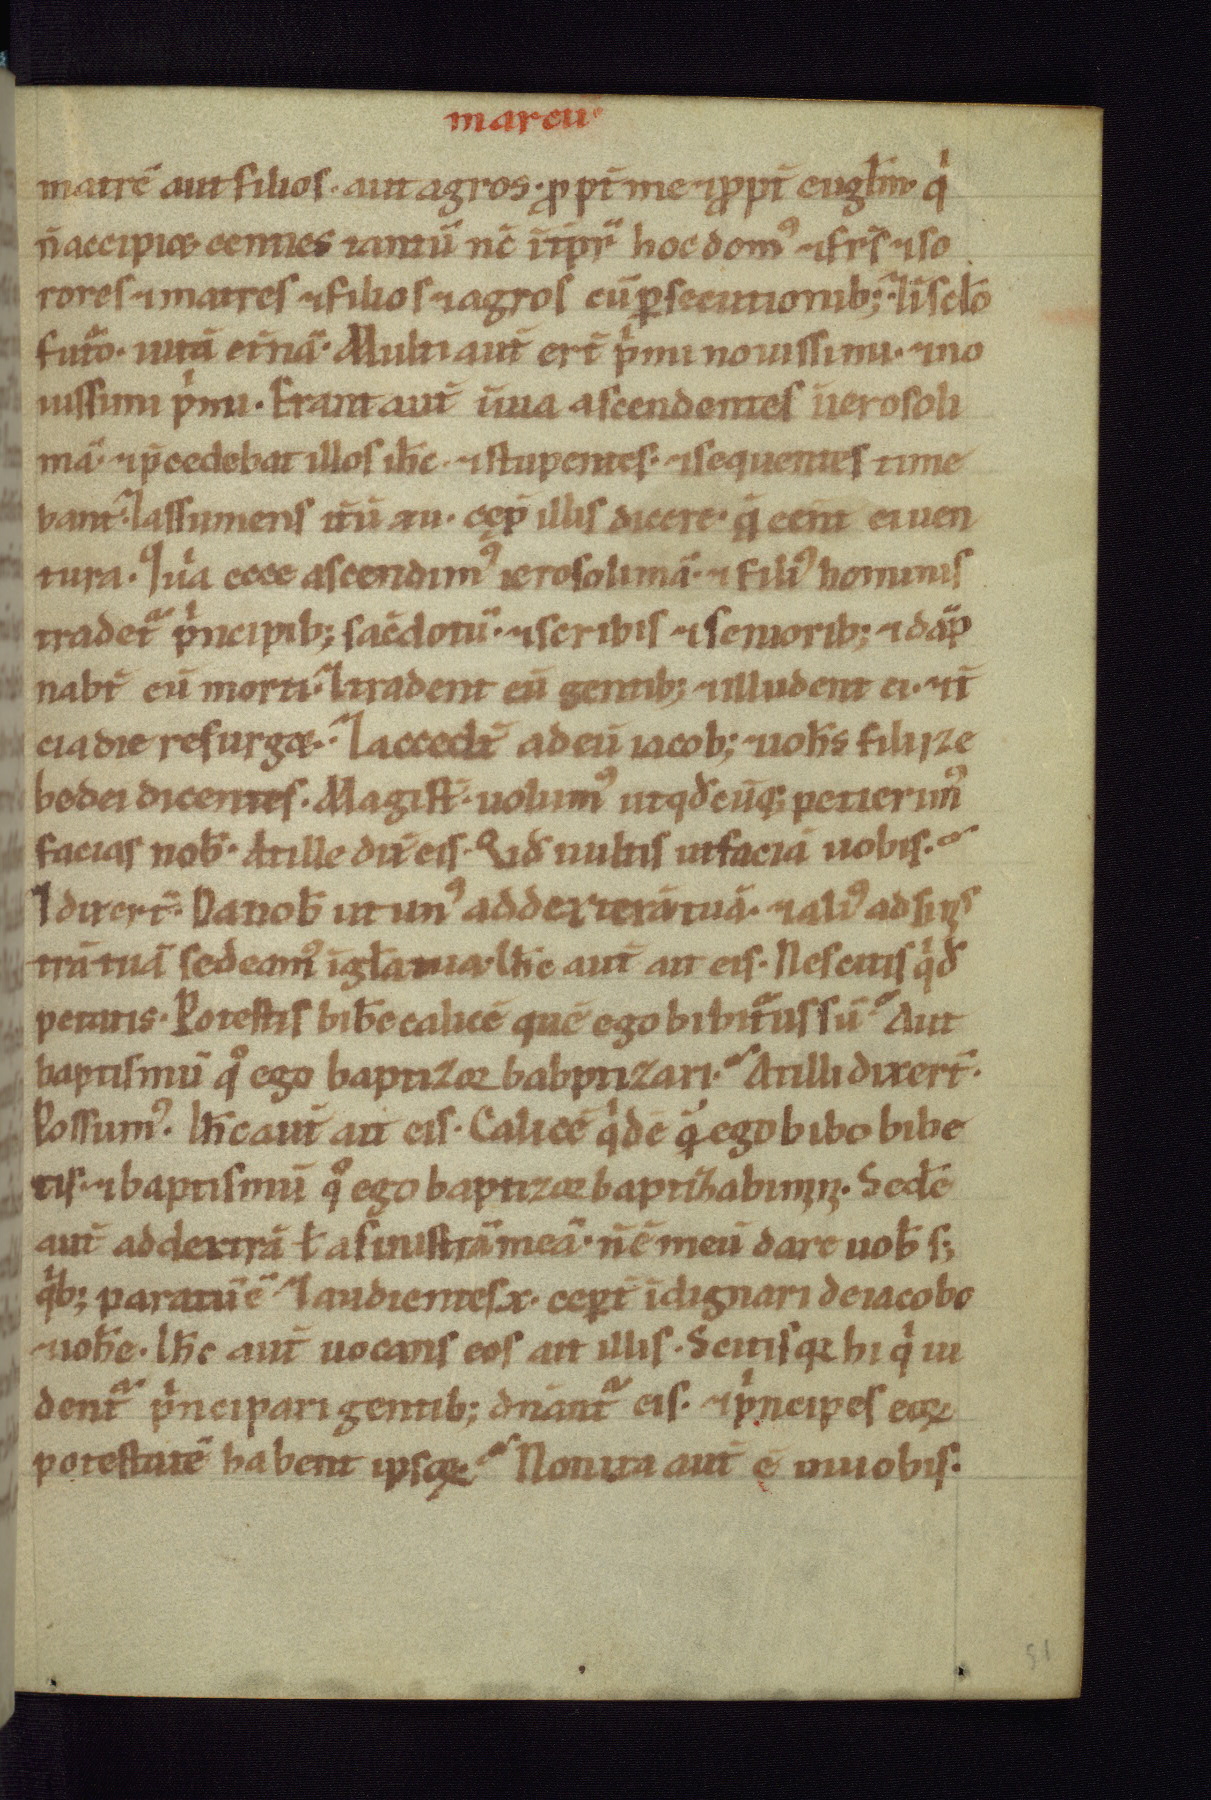 marcus
matrē aut filios. aut agros. ꝓpt̄ me ⁊ ꝓpt̄ eugl̄iū. qͥ
n̄ accipiæ centies tantū nc̄ ī tp̄r hoc domꝰ ⁊ fr̄s ⁊ so
rores ⁊ matres ⁊ filios ⁊ agros cū ꝑsecutionib; ⁊ ī sclō
fut̄o. uitā et̄nā. Multi aut̄ er̄t pͥmi nouissimi. ⁊ no
uissimi pͥmi. Erant aut̄ ī uia ascendentes ī ierosoli
mā. ⁊ p̄cedebat illos ih̄c. ⁊ stupentes. ⁊ sequentes time
bant. ⁊ assumens it̄ū xii. cęp̄ illis dicere. q̄ eēnt ei uen
tura. Quia ecce ascendimꝰ ierosolimā. ⁊ filiꝰ hominis
tradet̄ pͥncipib; sac̄dotū. ⁊ scribis ⁊ seniorib; ⁊ dāp
nabt̄ eū morti. ⁊ tradent eū gentib; ⁊ illudent ei. ⁊ t̄
cia die resurgæ. ⁊ accedt̄ ad eū iacob; ⁊ ioh̄s filii ze
bedei dicentes. Magist̄. uolumꝰ ut qd̄cūq; petierimꝰ
facias nob̄. At ille dix̄ eis. Qid̄ uultis ut faciā uobis.
⁊ dixer̄t. Da nob̄ ut unꝰ ad dexterā tuā. ⁊ aliꝰ ad sinis
trā tuā sedeamꝰ ī gl̄a tua. Ih̄c aut̄ ait eis. Nescitis qͥd̄
petatis. Potestis bib̄e calicē quē ego bibit̄us sū Aut
baptismū qͦ ego baptizor babptizari. At illi dixer̄t.
Possumꝰ. Ih̄c aut̄ ait eis. Calicē qͥdē q̄ ego bibo bibe
tis. ⁊ baptismū qͦ ego baptizor baptizabimini. Sedē
aut̄ ad dextrā ł a sinistrā meā. n̄ ē meū dare uob̄ s;
qͥb; paratū ē ⁊ audientes x. cept̄ īdignari de iacobo
⁊ ioh̄e. Ih̄c aut̄ uocans eos ait illis. Scitis qꝛ hi qͥ ui
dent̄ pͥncipari gentib; dn̄ant̄ eis. ⁊ pͥncipes eoꝝ
potestatē habent ipsoꝝ Non ita aut̄ ē in uobis.
51